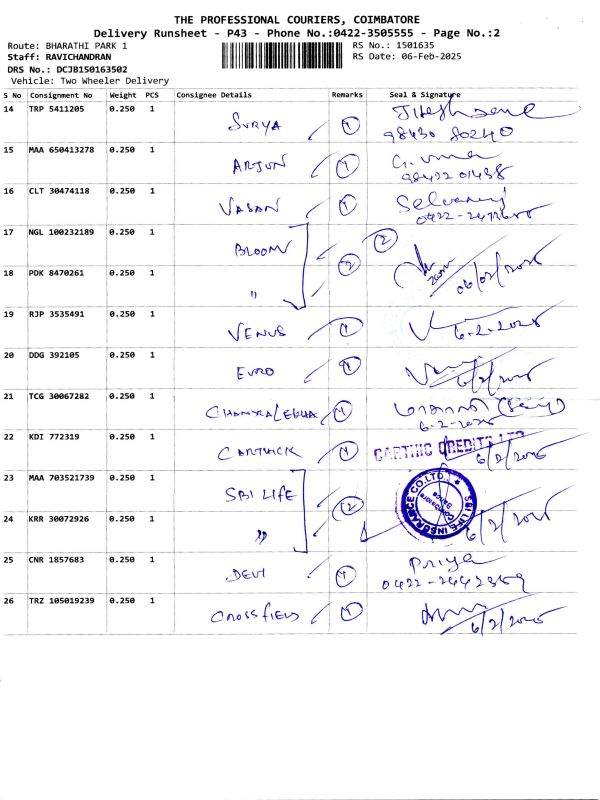 THE PROFESSIONAL COURIERS, COIMBATORE
Delivery Runsheet - P43 - Phone No.:0422-3505555 - Page No.:2
Route: BHARATHI PARK 1 RS No.: 1501635
Staff: RAVICHANDRAN RS Date: 06-Feb-2025
DRS No.: DCJB150163502
Vehicle: Two Wheeler Delivery
S No Consignment No Weight PCS Consignee Details Remarks Seal & Signature
14 TRP 5411205 0.250 1
SURYA 1
98430 80240
15 MAA 650413278 0.250 1 G. Uma
ARJUN 1 98422 01488
16 CLT 30474118 0.250 1
VASAN 1
17 NGL 100232189 0.250 1
BLOOM 2 2
18 PDK 8470261 0.250 1
" 06/02/2025
19 RJP 3535491 0.250 1
VENUS 1 6-2-2025
20 DDG 392105 0.250 1
EURO 1 6/2/2025
21 TCG 30067282 0.250 1
CHANDRALEKHA 1
6-2-2025
22 KDI 772319 0.250 1 CARTHIC CREDITS LTD
CARTHICK 1 6/2/2025
23 MAA 703521739 0.250 1
SBI LIFE 2 SBI LIFE INSURANCE CO.LTD.
24 KRR 30072926 0.250 1
" 6/2/2025
25 CNR 1857683 0.250 1 Priya
DEVI 1 0422-2442359
26 TRZ 105019239 0.250 1
CROSSFIELD 1 6/2/2025